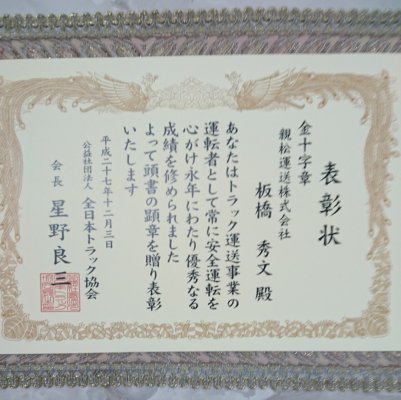 表彰状
金十字章
親松運送株式会社
板橋 秀文 殿
あなたはトラック運送事業の
運転者として常に安全運転を
心がけ永年にわたり優秀なる
成績を修められました
よって頭書の顕章を贈り表彰
いたします
平成二十七年十二月三日
公益社団法人 全日本トラック協会
会長 星野良三